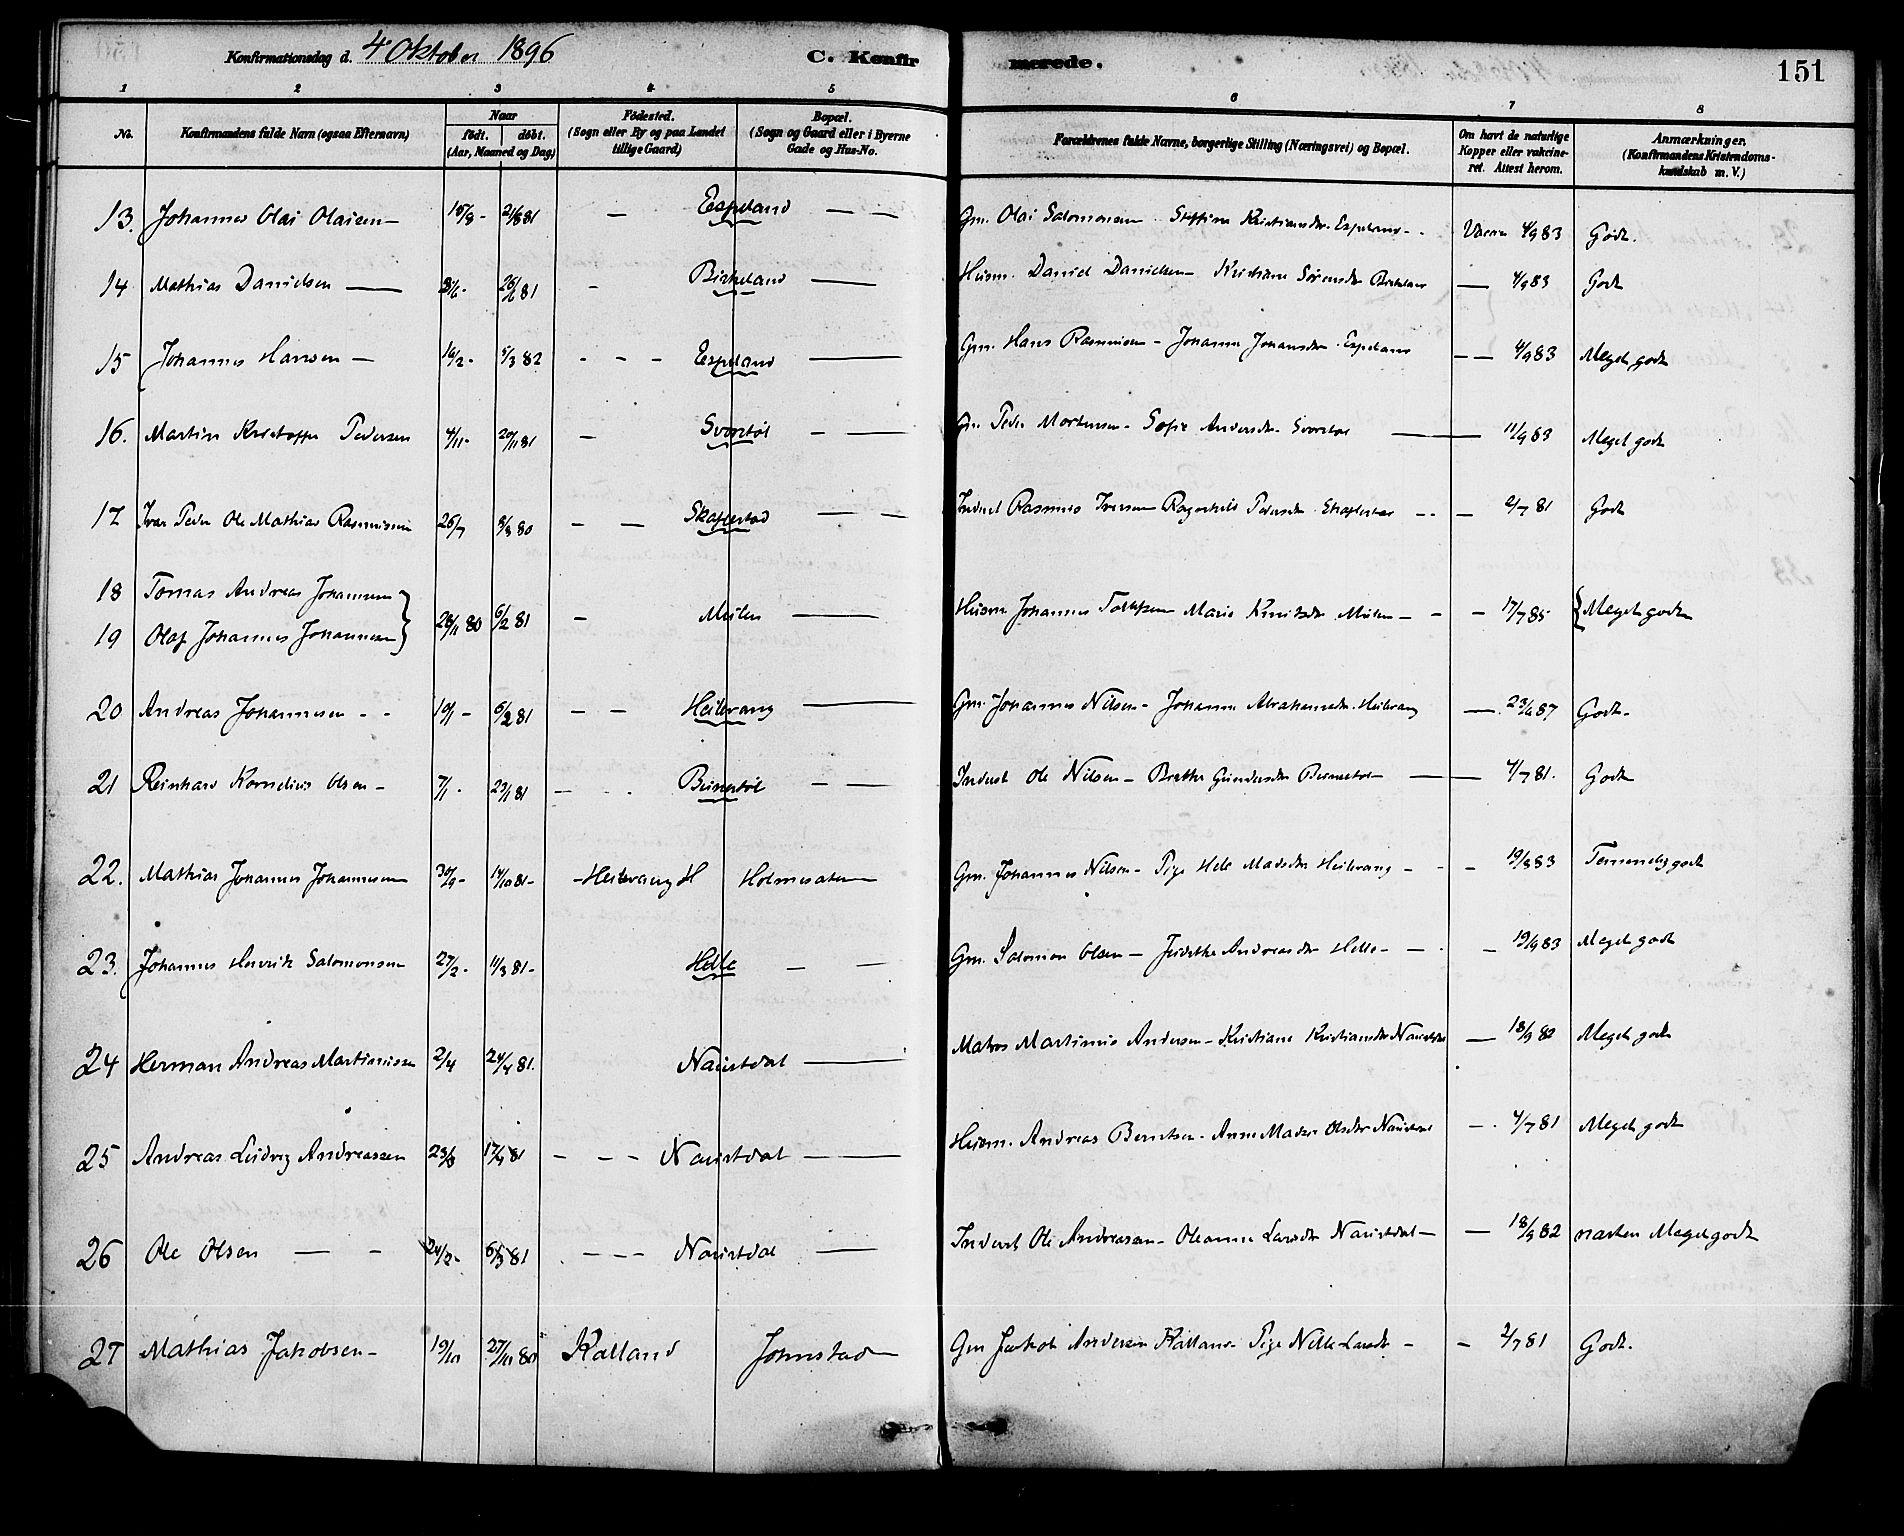 Konfirmationsdag d. 4 Oktober 1896 C. Konfirmerede. 151
1 2 3 4 5 6 7 8
No. Konfirmandens fulde Navn (ogsaa Efternavn) Naar født. døbt. (Aar, Maaned og Dag) Fødested. (Sogn eller By og paa Landet tillige Gaard) Bopæl. (Sogn og Gaard eller i Byerne Gade og Hus-No. Forældrenes fulde Navne, borgerlige Stilling (Næringsvei) og Bopæl. Om havt de naturlige Kopper eller vakcineret. Attest herom. Anmærkninger. (Konfirmandens Kristendomskundskab m. V.)
13. Johannes Olai Olaisen — 21/8 81 — Espeland — — Gm. Olai Salomonsen Kristiansdtr. Espeland 4/9 83 Godt.
14 Mathias Danielsen — 26/6 81 - Birkeland — Husm. Daniel Danielsen Kristiane Sørensdtr Birkeland — 4/9 83 Godt
15 Johannes Hansen — 16/2 - 5/3 82 - - - Espeland — Gm. Hans Rasmussen - Johanne Johansdtr. Espeland — — 4/9 83 Meget godt
16. Martin Kristoffer Pedersen 4/11 - 20/11 81 - Svortøl - — Gm Peder Mortensen - Sofie Andersdtr Svortøl — 11/9 83 Meget godt
17 Ivar Peder Ole Mathias Rasmussen 26/7 8/8 80 - — — - Indust Rasmus Iversen Ragnhild Pedersdtr — 2/7 81 Godt
18 Tomas Andreas Johannesen
19 Olaf Johannes Johannesen 28/11 80 6/2 81 - — Husm Johannes Marie Knutsdtr - - 17/7 85 Meget godt
20 Andreas Johannesen - - 10/1 - 6/2 81 — — Heilevang — Gm. Johannes Nilsen - Johanne Abrahamsdtr. Heilevang — 87 Godt -
21 Reinhard Kornelius Olsen - 7/1 - 23/1 81 — Indust Ole Nilsen — Gundersdtr — 4/7 81. Godt
22. Mathias Johannes Johannesen 30/9 - 14/10 81 - - Heilevang H Gm. Johannes Nilsen - Pige Madsdtr Heilevang - - - 19/8 83 Temmelig godt
23. Johannes Henrik Salomonsen 27/2 - 11/3 81 - Helle - — Gm. Salomon Olsen — Andreasdtr Helle - — - 19/9 83 Meget godt
24 Herman Andreas Martinussen 2/4 24/4 81. Naustdal — Matros Martinus Andersen - Kristiane Kristiansdtr Naustdal — 18/9 82 Meget godt
25 Andreas Ludvig Andreassen 23/3 17/4 81 - - - Naustdal — Husm. Andreas Berntsen - Anne Olsdtr Naustdal — . 4/7 81 Meget godt
26 Ole Olsen — - 24/2 - 6/3 81 - - - Naustdal — Indust Ole Andreassen - Oleanne Larsdtr Naustdal — — 18/9 82 næsten Meget godt
27 Mathias Jakobsen - 19/10 27/10 80 Kalland Johnstad — Gm Jakob Andersen Kalland Pige Larsdtr - - 2/7 81 Godt.